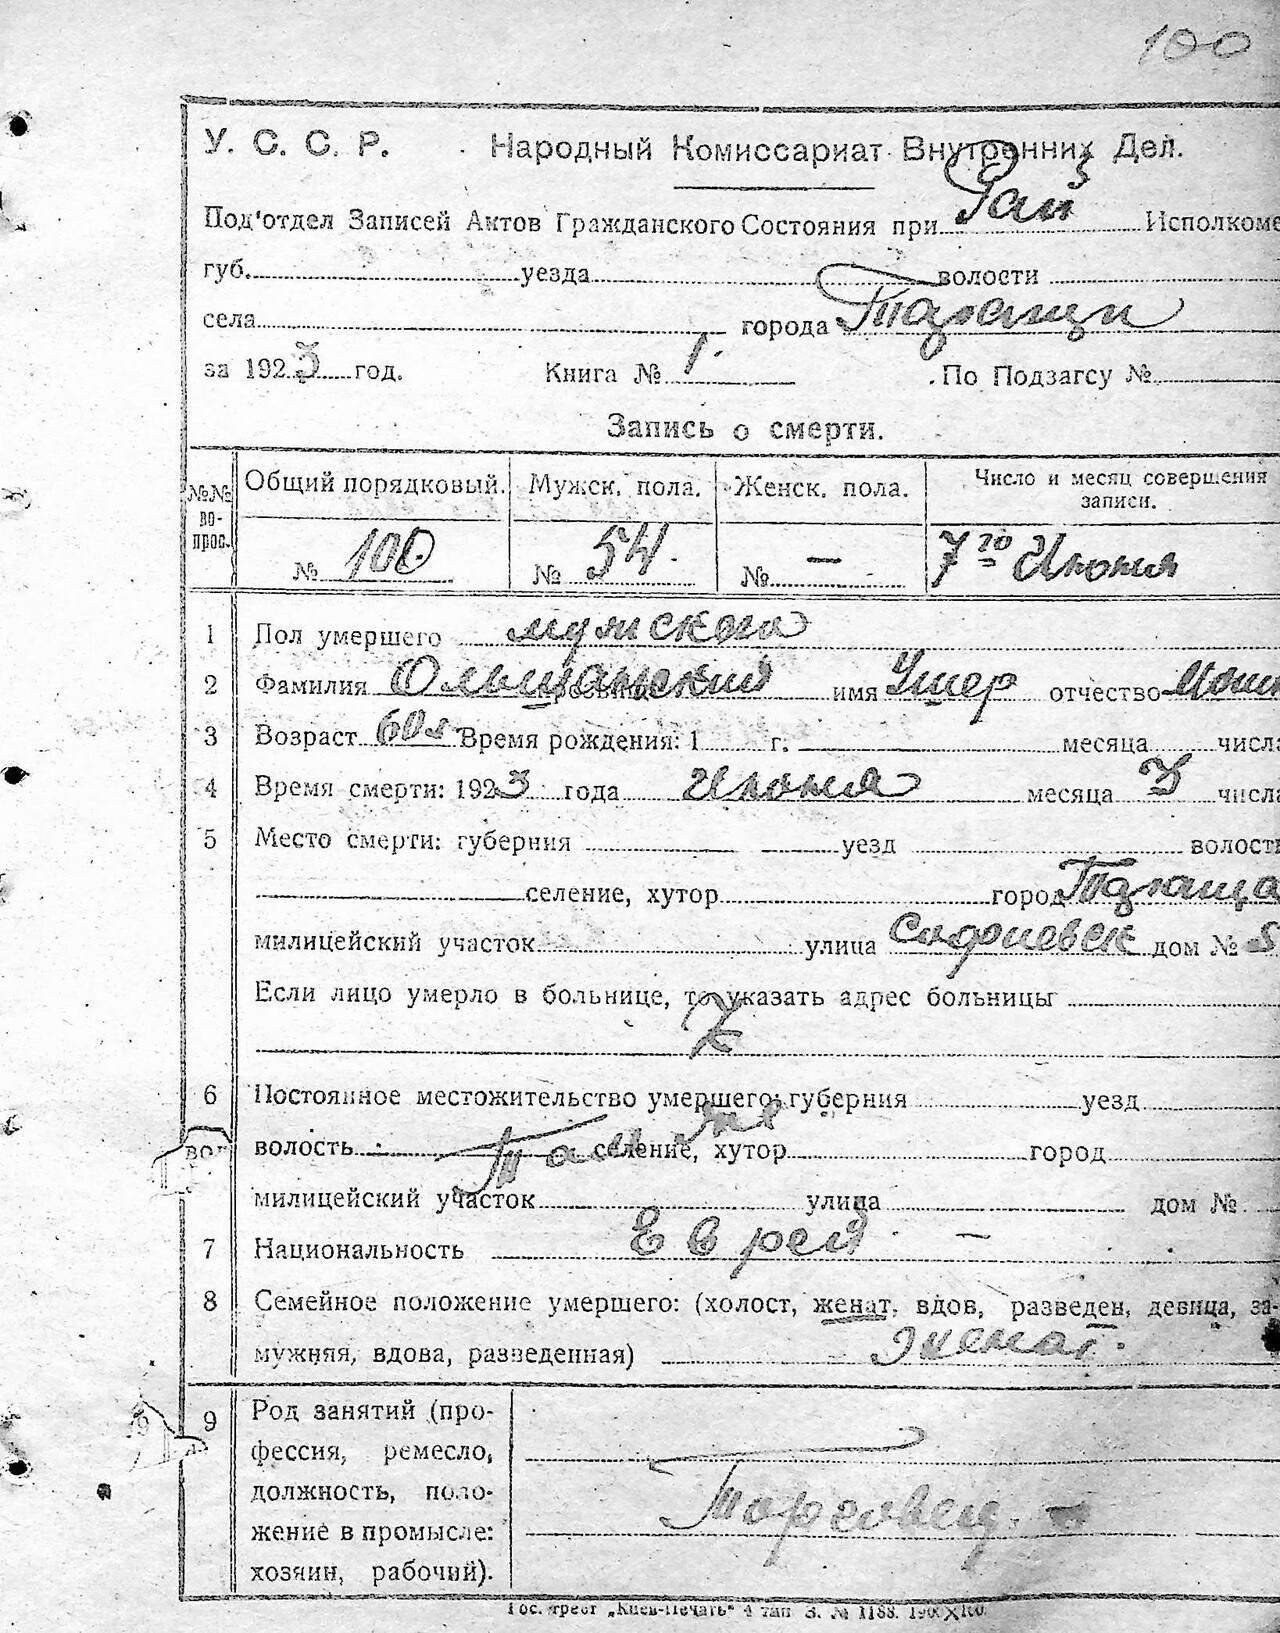 100
У. С. С. Р. Народный Комиссариат Внутренних Дел.
Под'отдел Записей Актов Гражданского Состояния при Рай Исполкоме
губ. уезда волости
села города Таращи
за 1923 год. Книга № 1. По Подзагсу №
Запись о смерти.
№№ во-прос. Общий порядковый. Мужск. пола. Женск. пола. Число и месяц совершения записи.
№ 100 № 54. № — 7го Июня
1 Пол умершего мужского
2 Фамилия Ольшанский имя Ушер отчество
3 Возраст 60 л Время рождения: 1 г. месяца числа
4 Время смерти: 1923 года Июня месяца числа
5 Место смерти: губерния уезд волость
селение, хутор город Тараща
милицейский участок улица Софиевск дом № 5
Если лицо умерло в больнице, то указать адрес больницы
Z
6 Постоянное местожительство умершего: губерния уезд
волость Там же селение, хутор город
милицейский участок улица дом №
7 Национальность Еврей —
8 Семейное положение умершего: (холост, женат, вдов, разведен, девица, за-
мужняя, вдова, разведенная) женат.
9 Род занятий (про-
фессия, ремесло,
должность, поло-
жение в промысле:
хозяин, рабочий).
Торговец.
Гос. трест „Киев-Печать" 4 тип З. № 1188.